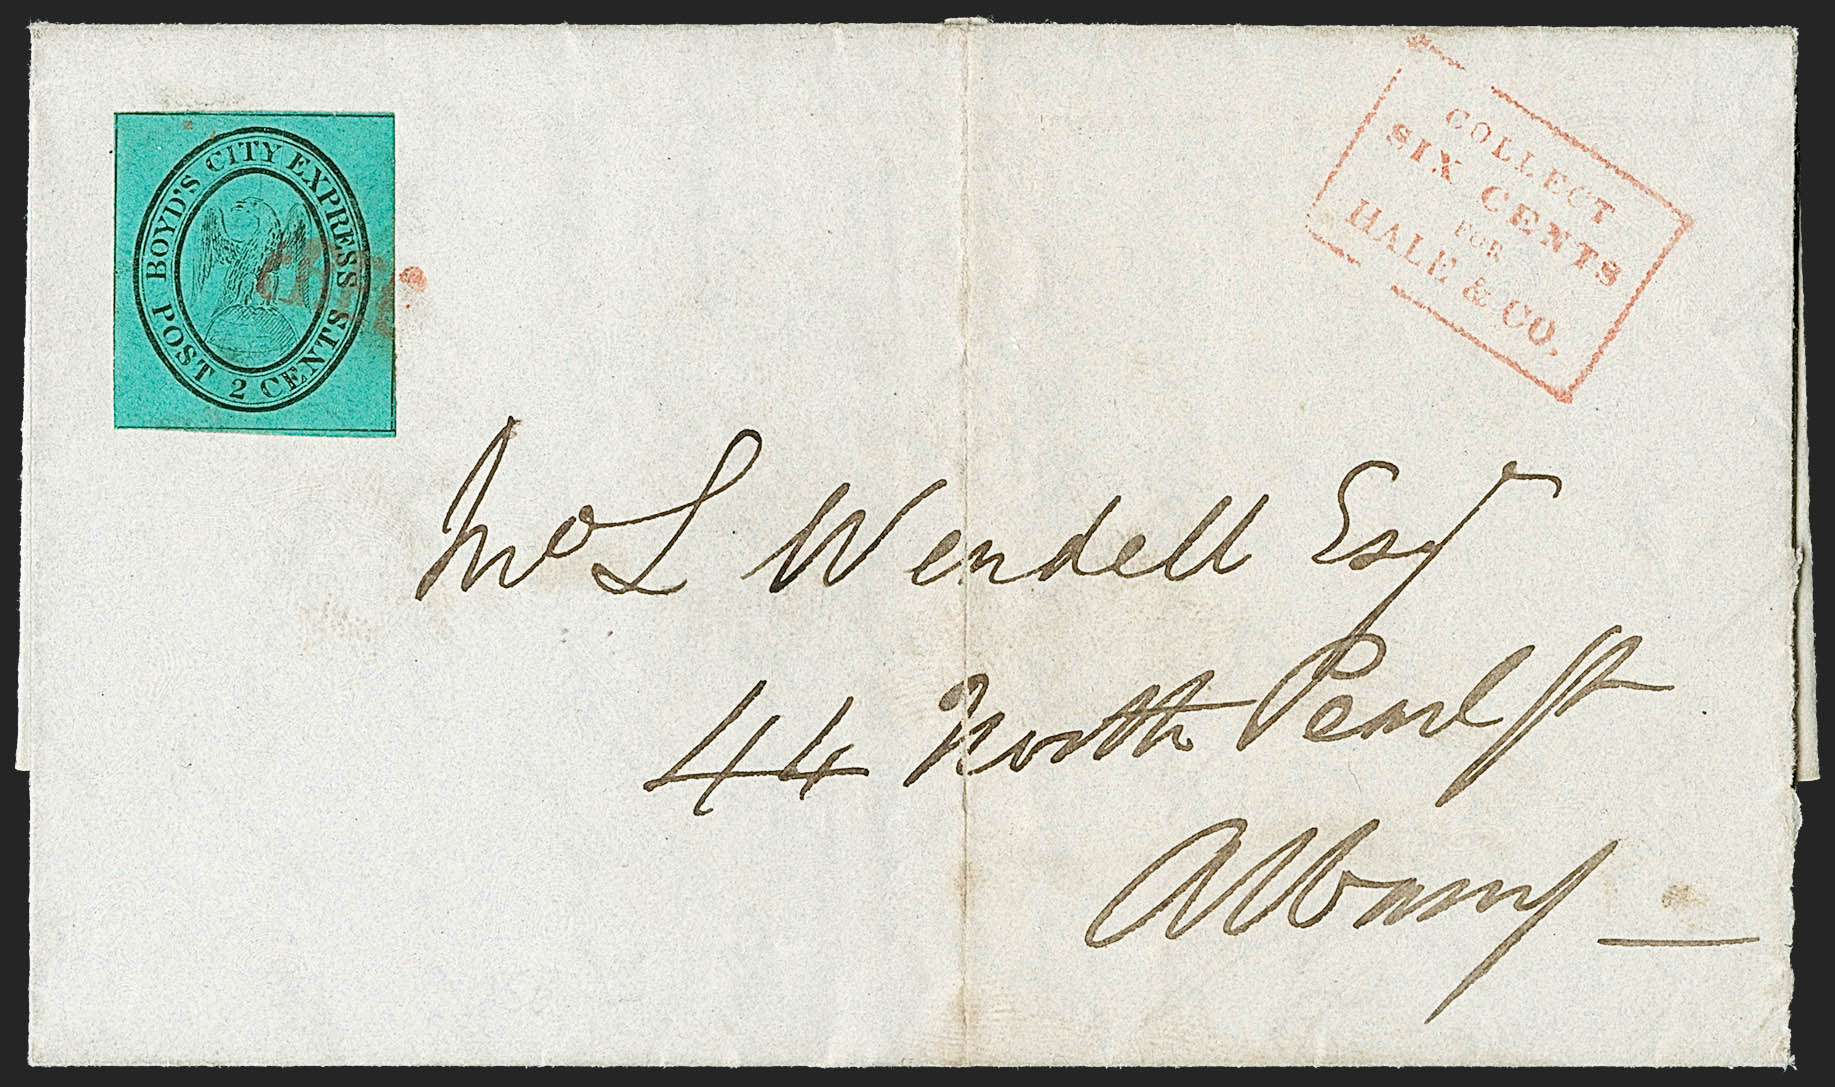 BOYD'S CITY EXPRESS
POST 2 CENTS
COLLECT
SIX CENTS
FOR
HALE & CO.
L Wendell Esqr
44 North Pearl St
Albany